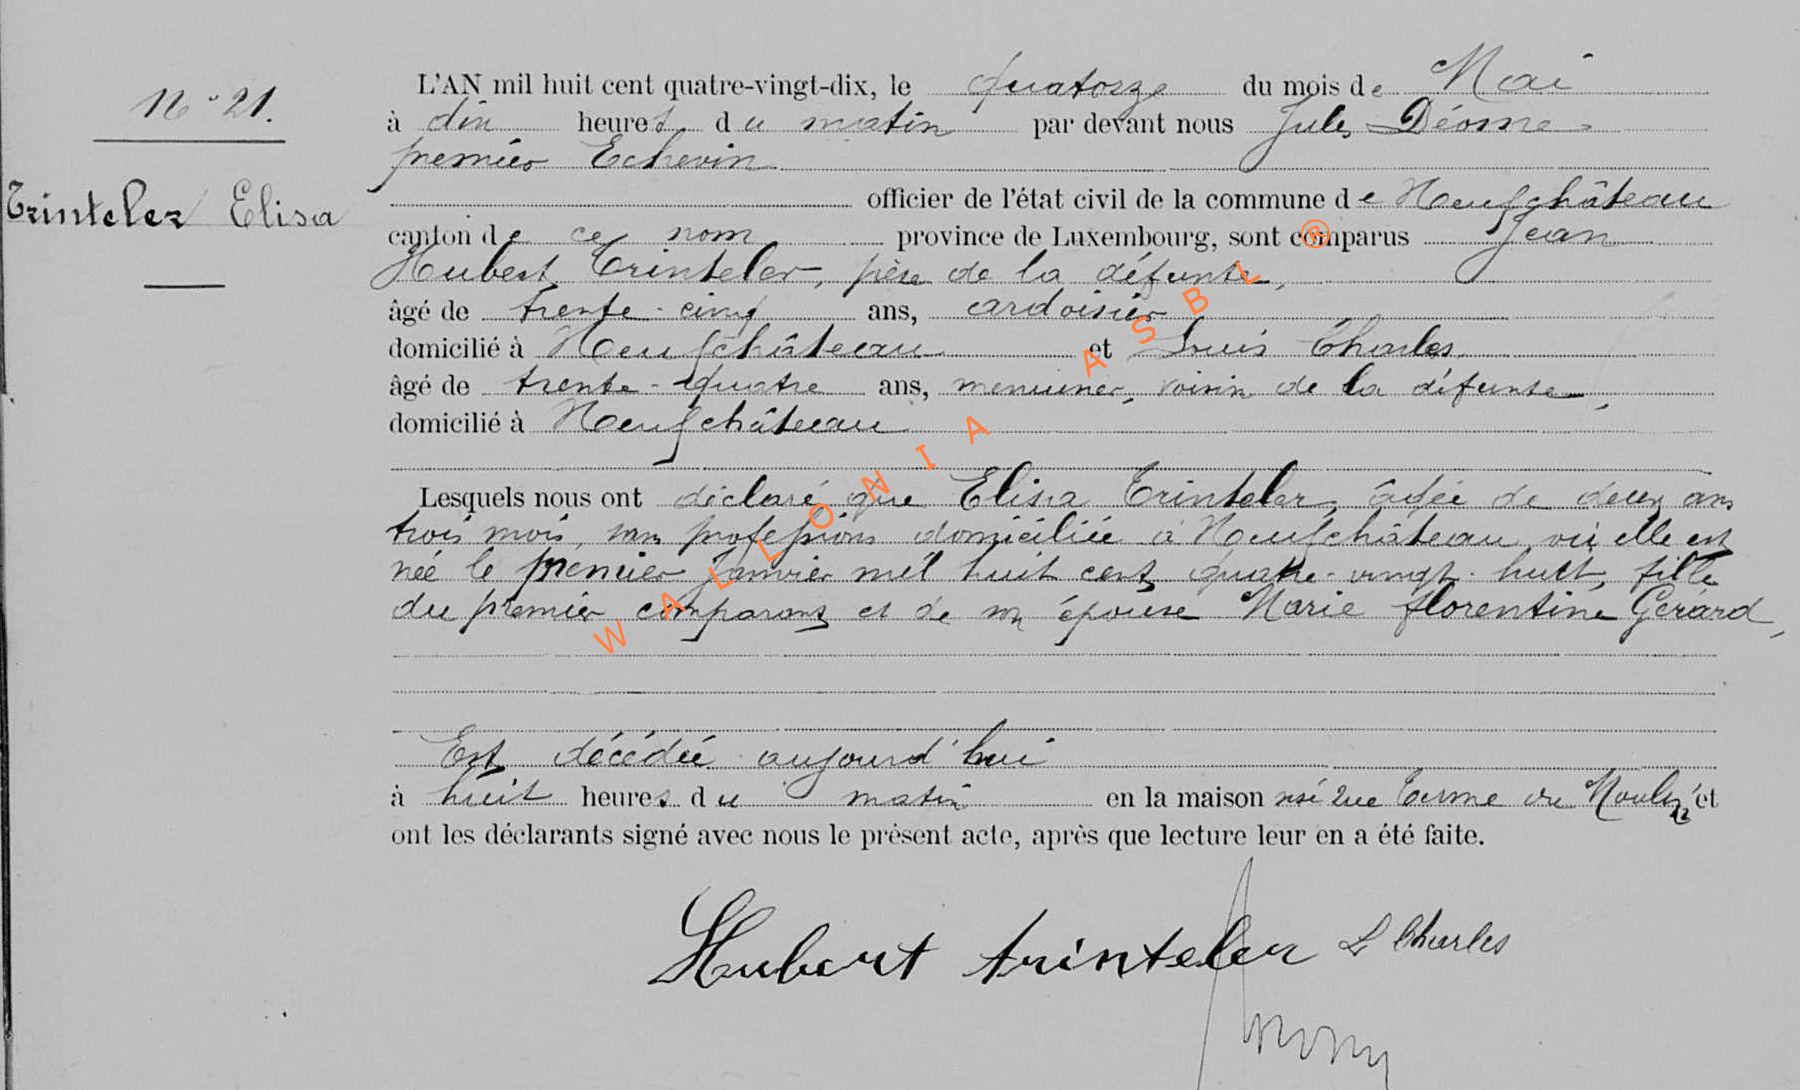 N° 21.
Trinteler Elisa
L'AN mil huit cent quatre-vingt-dix, le quatorze du mois de Mai
à dix heures du matin par devant nous Jules Déome
premier Echevin
officier de l'état civil de la commune de Neufchâteau
canton de ce nom province de Luxembourg, sont comparus Jean
Hubert Trinteler, père de la défunte,
âgé de trente-cinq ans, ardoisier
domicilié à Neufchâteau et Louis Charles
âgé de trente-quatre ans, menuisier, voisin de la défunte,
domicilié à Neufchâteau
Lesquels nous ont déclaré que Elisa Trinteler, âgée de deux ans
trois mois, sans profession domiciliée à Neufchâteau où elle est
née le premier Janvier mil huit cent quatre-vingt-huit, fille
du premier comparant et de son épouse Marie florentine Gérard,
Est décédée aujourd'hui
à huit heures du matin en la maison sise rue Terme du Moulin et
ont les déclarants signé avec nous le présent acte, après que lecture leur en a été faite.
Hubert trinteler L Charles
WALLONIA ASBL ®